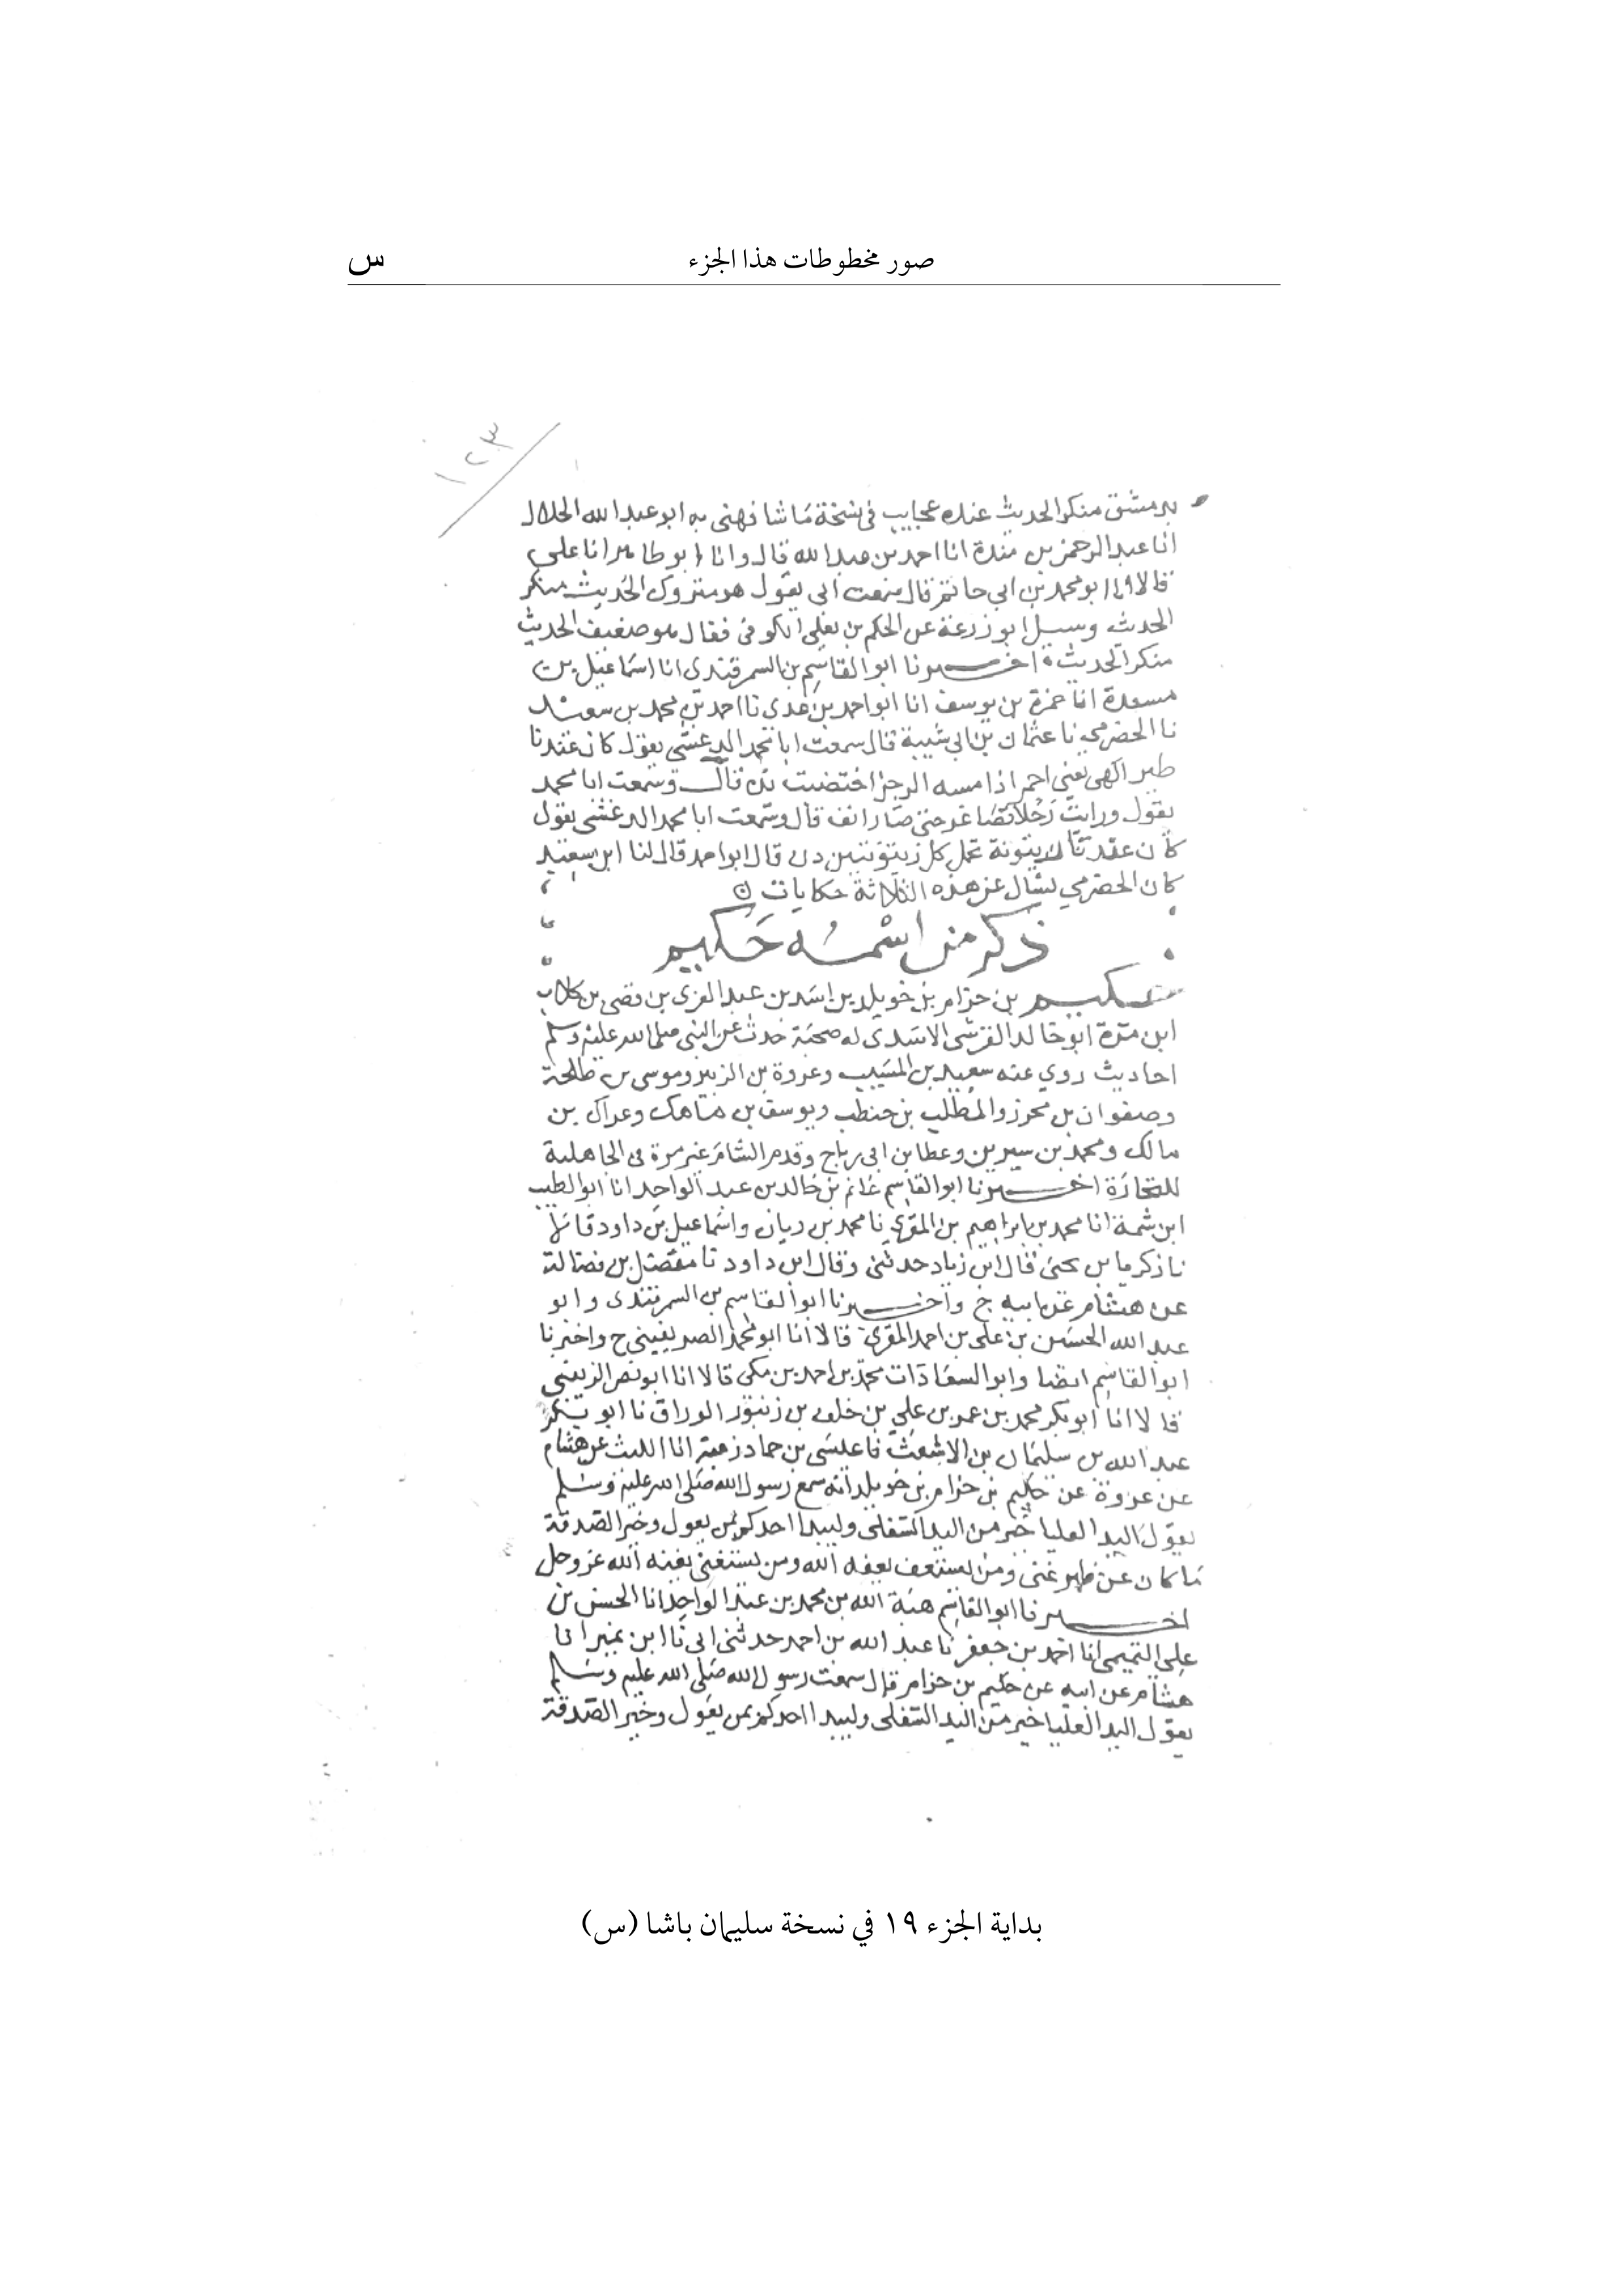 صور مخطوطات هذا الجزء
س
١٢٣
بدمشق منكر الحديث عنده عجايب في نسخة ما شافهني به ابو عبد الله الخلال
انا عبد الرحمن بن مندة انا احمد بن عبد الله قال وانا ابو طاهر انا علي
قالا انا ابو محمد بن ابي حاتم قال سمعت ابي يقول هو متروك الحديث منكر
الحديث وسيل ابو زرعة عن الحكم بن يعلى الكوفي فقال هو ضعيف الحديث
منكر الحديث اخبرنا ابو القاسم بن السمرقندي انا اسماعيل بن
مسعدة انا حمزة بن يوسف انا ابو احمد بن عدي نا احمد بن محمد بن سعيد
نا الحضرمي نا عثمان بن ابي شيبة قال سمعت ابا محمد الدغشي يقول كان عندنا
طير الهى يعني احمر اذا مسه الرجل اختضبت يده قال وسمعت ابا محمد
يقول ورايت رجلا قصا غر حتى صار انف قال وسمعت ابا محمد الدغشي يقول
كان عندنا زيتونة تحمل كل زيتونتين دن قال ابو احمد قال لنا ابن سعيد
كان الحضرمي يسال عن هذه الثلاثة حكايات
ذكر من اسمه حكيم
حكيم بن حزام بن خويلد بن اسد بن عبد العزى بن قصي بن كلاب
ابن مرة ابو خالد القرشي الاسدي له صحبة حدث عن النبي صلى الله عليه وسلم
احاديث روى عنه سعيد بن المسيب وعروة بن الزبير وموسى بن طلحة
وصفوان بن محرز والمطلب بن حنطب ويوسف بن ماهك وعراك بن
مالك ومحمد بن سيرين وعطا بن ابي رباح وقدم الشام غير مرة في الجاهلية
للتجارة اخبرنا ابو القاسم غانم بن خالد بن عبد الواحد انا ابو الطيب
ابن شمة انا محمد بن ابراهيم بن المقري نا محمد بن ريان واسماعيل بن داود قالا
نا زكريا بن يحيى قال ابن زياد حدثني وقال ابن داود نا مفضل بن فضالة
عن هشام عن ابيه ح واخبرنا ابو القاسم بن السمرقندي وابو
عبد الله الحسين بن علي بن احمد المقري قالا انا ابو محمد الصريفيني ح واخبرنا
ابو القاسم ايضا وابو السعادات محمد بن احمد بن مكي قالا انا ابو نصر الزينبي
قالا انا ابو بكر محمد بن عمر بن علي بن خلف بن زنبور الوراق نا ابو بكر
عبد الله بن سليمان بن الاشعث نا عيسى بن حماد زغبة انا الليث عن هشام
عن عروة عن حكيم بن حزام بن خويلد انه سمع رسول الله صلى الله عليه وسلم
يقول اليد العليا خير من اليد السفلى وليبدا احدكم بمن يعول وخير الصدقة
ما كان عن ظهر غنى ومن يستعفف يعفه الله ومن يستغني يغنه الله عز وجل
اخبرنا ابو القاسم هبة الله بن محمد بن عبد الواحد انا الحسن بن
علي التميمي انا احمد بن جعفر نا عبد الله بن احمد حدثني ابي نا ابن نمير انا
هشام عن ابيه عن حكيم بن حزام قال سمعت رسول الله صلى الله عليه وسلم
يقول اليد العليا خير من اليد السفلى وليبدا احدكم بمن يعول وخير الصدقة
بداية الجزء ١٩ في نسخة سليمان باشا (س)